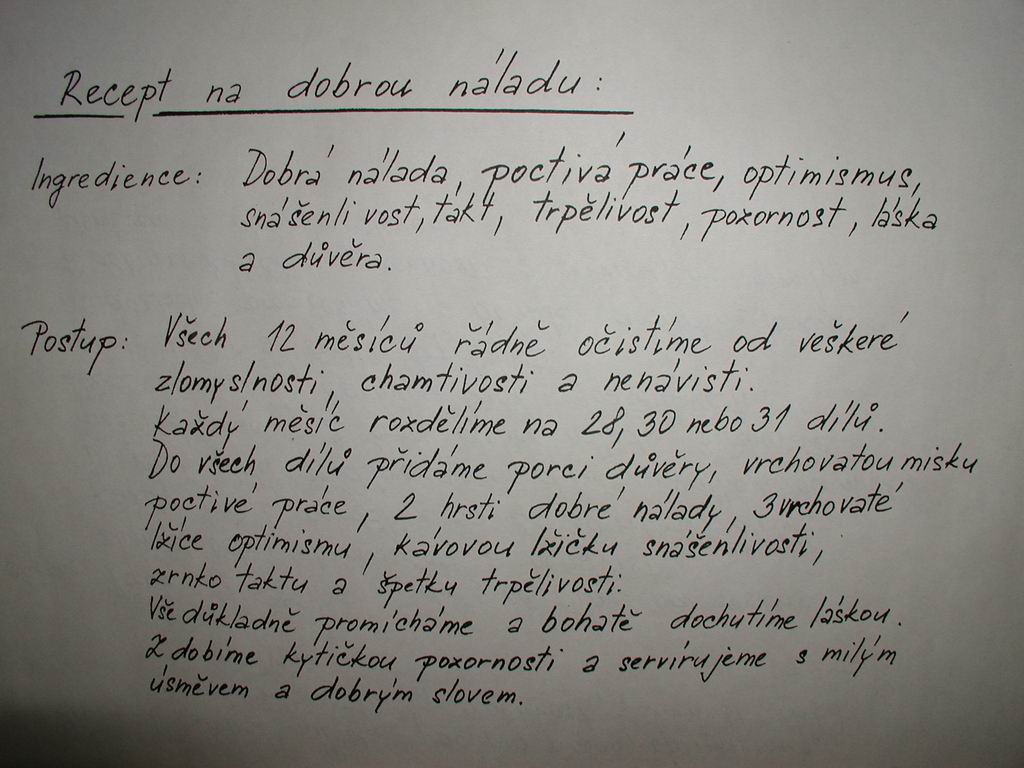 Recept na dobrou náladu:
Ingredience: Dobrá nálada, poctivá práce, optimismus,
snášenlivost, takt, trpělivost, pozornost, láska
a důvěra.
Postup: Všech 12 měsíců řádně očistíme od veškeré
zlomyslnosti, chamtivosti a nenávisti.
Každý měsíc rozdělíme na 28, 30 nebo 31 dílů.
Do všech dílů přidáme porci důvěry, vrchovatou misku
poctivé práce, 2 hrsti dobré nálady, 3 vrchovaté
lžíce optimismu, kávovou lžičku snášenlivosti,
zrnko taktu a špetku trpělivosti.
Vše důkladně promícháme a bohatě dochutíme láskou.
Zdobíme kytičkou pozornosti a servírujeme s milým
úsměvem a dobrým slovem.